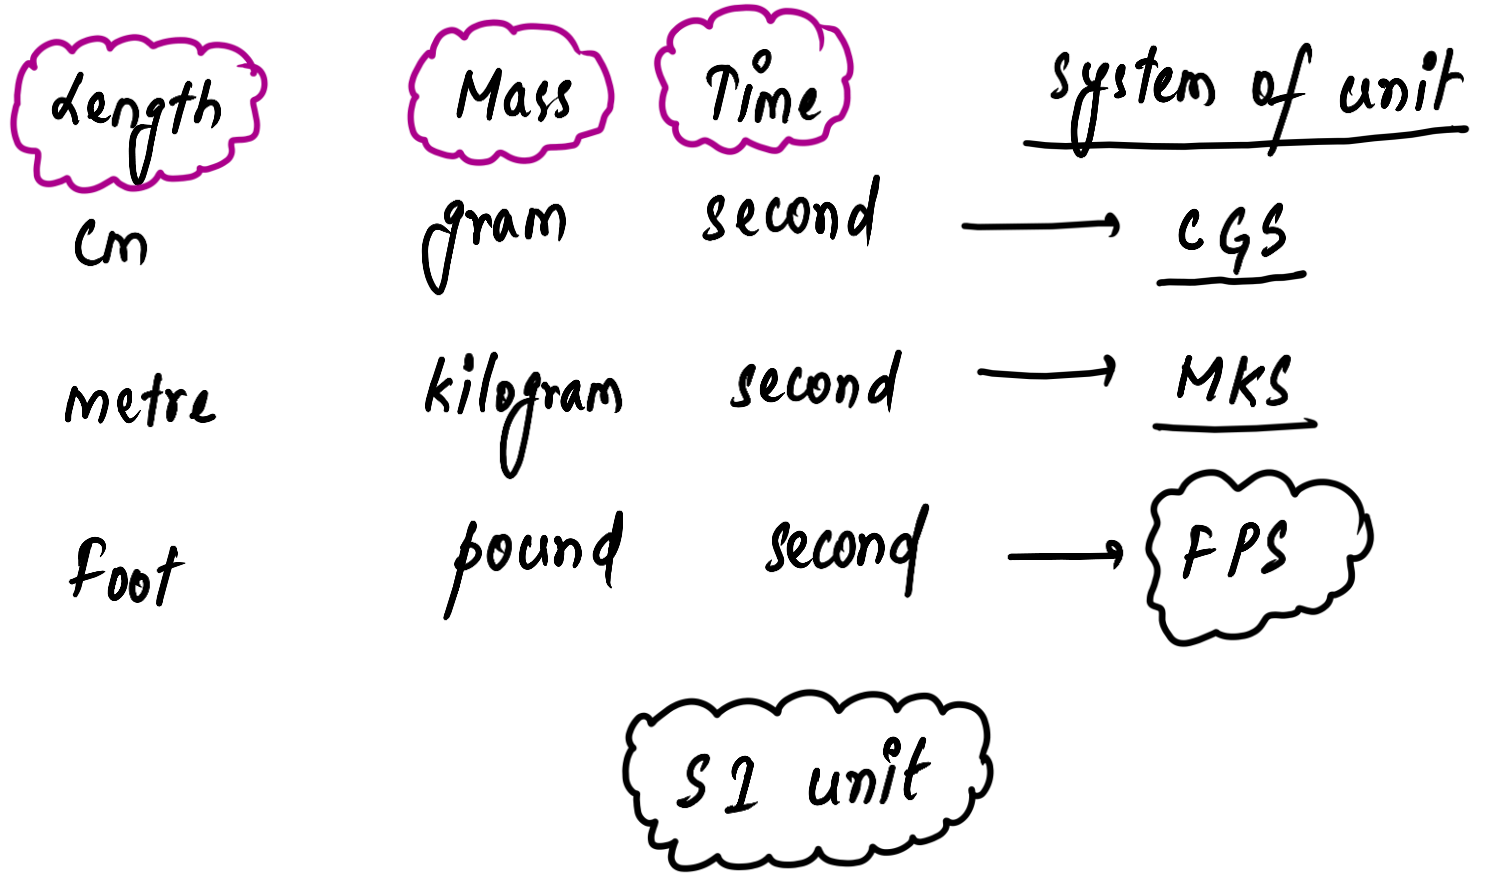 Length Mass Time system of unit
cm gram second → CGS
metre kilogram second → MKS
Foot pound second → FPS
SI unit